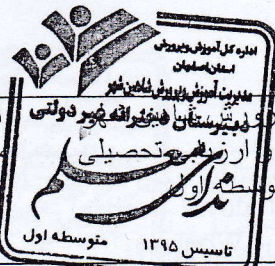 اداره کل آموزش و پرورش
استان اصفهان
مدیریت آموزش و پرورش شاهین شهر
دبیرستان دخترانه غیر دولتی
و ارزیابی تحصیلی
ندای علم
متوسطه اول
تاسیس ۱۳۹۵